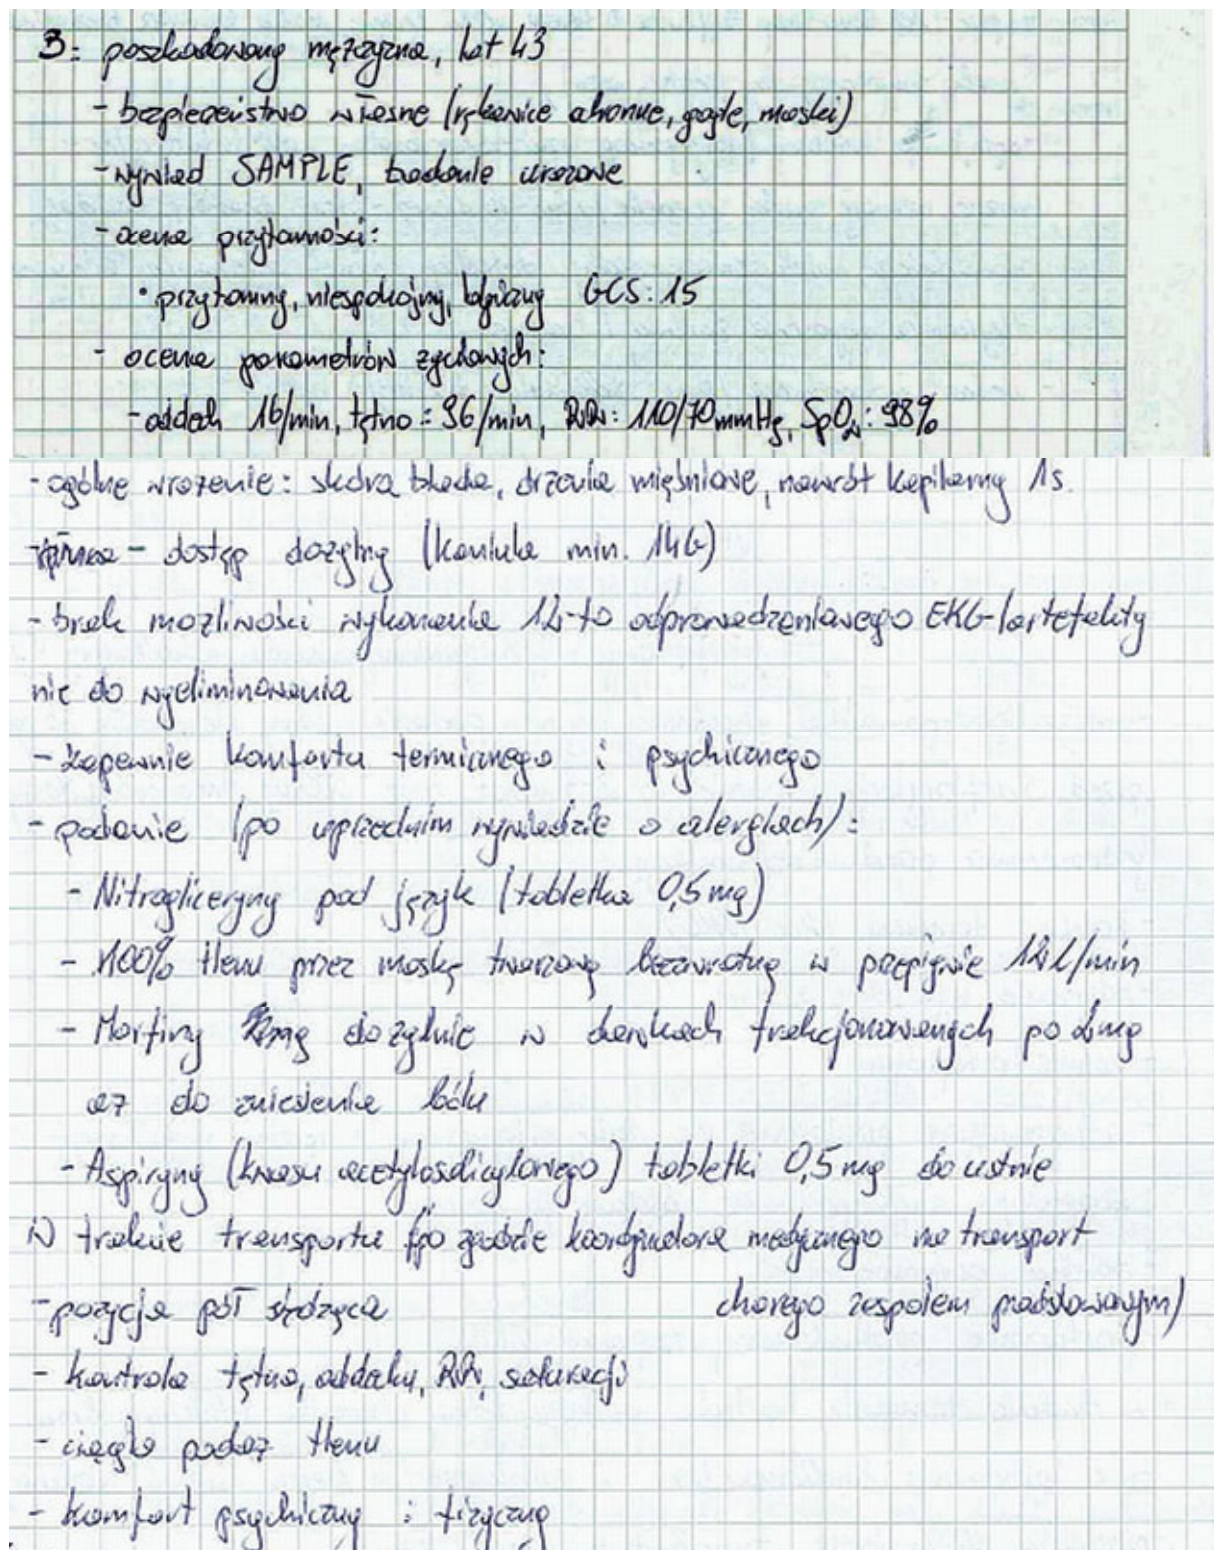 3: poszkodowany mężczyzna, lat 43
- bezpieczeństwo własne (rękawice ochronne, gogle, maski)
- wywiad SAMPLE, badanie urazowe
- ocena przytomności:
• przytomny, niespokojny, logiczny GCS: 15
- ocena parametrów życiowych:
- oddech 16/min, tętno: 96/min, RR: 110/70 mmHg, SpO2: 98%
- ogólne wrażenie: skóra blada, drżenia mięśniowe, nawrót kapilarny 1s.
- dostęp dożylny (kaniula min. 14G)
- brak możliwości wykonania 12-to odprowadzeniowego EKG - (artefakty
nie do wyeliminowania
- zapewnie komfortu termicznego i psychicznego
- podanie (po uprzednim wywiadzie o alergiach):
- Nitrogliceryny pod język (tabletka 0,5 mg)
- 100% tlenu przez maskę twarzową bezzwrotną w przepływie 12 l/min
- Morfiny dożylnie w dawkach frakcjonowanych po 2mg
aż do zniesienia bólu
- Aspiryny (kwasu acetylosalicylowego) tabletki 0,5 mg doustnie
W trakcie transportu (po zgodzie koordynatora medycznego na transport
chorego zespołem podstawowym)
- pozycja pół siedząca
- kontrola tętna, oddechu, RR, saturacji
- ciągła podaż tlenu
- komfort psychiczny i fizyczny